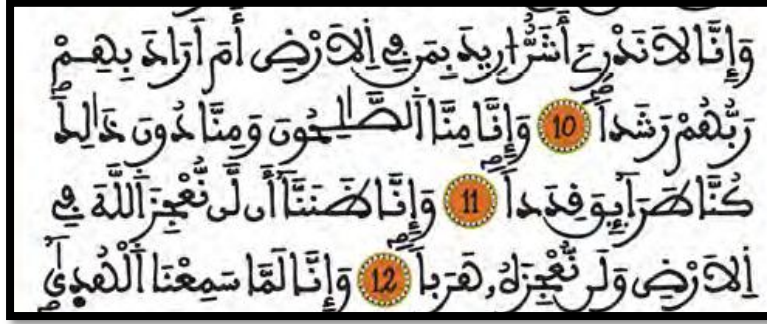 وَإِنَّا لَا نَدْرِے أَشَرٌّ ا۟رِيدَ بِمَن فِے اِ۬لَارْضِ أَمَ اَرَادَ بِهِمْ
رَبُّهُمْ رَشَداٗ 10 وَإِنَّا مِنَّا اَ۬لصَّٰلِحُونَ وَمِنَّا دُونَ ذَٰلِكَۖ
كُنَّا طَرَآئِقَ قِدَداٗ 11 وَإِنَّا ظَنَنَّآ أَن لَّن نُّعْجِزَ اَ۬للَّهَ فِے
اِ۬لَارْضِ وَلَن نُّعْجِزَهُۥ هَرَباٗ 12 وَإِنَّا لَمَّا سَمِعْنَا اَ۬لْهُد۪ىٰٓ